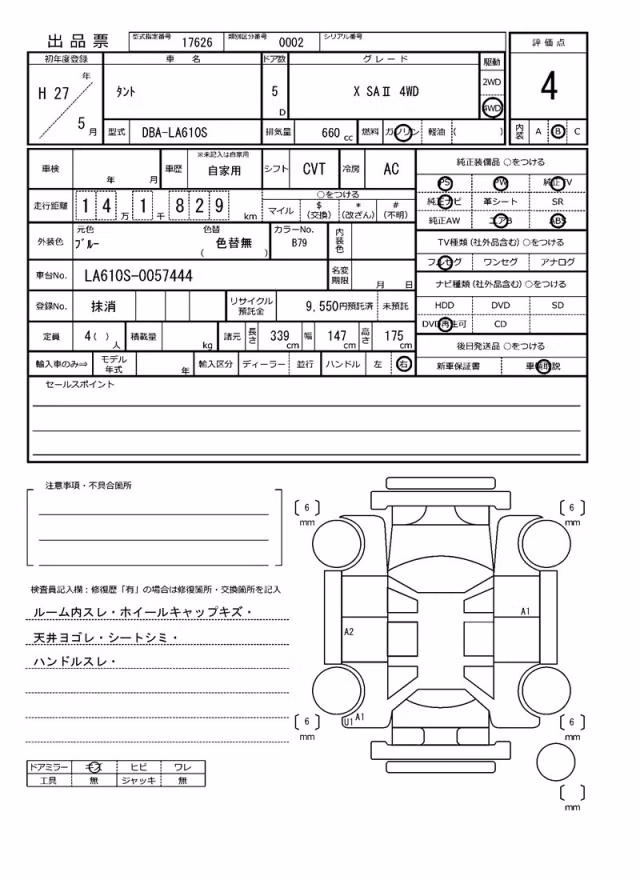 出品票
型式指定番号 17626 類別区分番号 0002 シリアル番号
評価点
4
内装 A B C
初年度登録 車名 ドア数 グレード 駆動
H 27 年 5 月
タント 5 D X SAⅡ 4WD 2WD 4WD
型式 DBA-LA610S 排気量 660 cc 燃料 ガソリン 軽油 ( )
車検 年 月 車歴 ※未記入は自家用 自家用 シフト CVT 冷房 AC
走行距離 1 4 万 1 千 8 2 9 km
○をつける
マイル $(交換) *(改ざん) #(不明)
外装色 元色 ブルー 色替 ( 色替無 ) カラーNo. B79 内装色
車台No. LA610S-0057444 名変期限 月 日
登録No. 抹消 リサイクル預託金 9,550円預託済 未預託
定員 4( ) 人 積載量 kg 諸元 長さ 339 cm 幅 147 cm 高さ 175 cm
輸入車のみ⇒ モデル年式 年 輸入区分 ディーラー 並行 ハンドル 左 右
純正装備品 ○をつける
PS PW 純正TV
純正ナビ 革シート SR
純正AW エアB ABS
TV種類(社外品含む)○をつける
フルセグ ワンセグ アナログ
ナビ種類(社外品含む)○をつける
HDD DVD SD
DVD再生可 CD
後日発送品 ○をつける
新車保証書 車輌取説
セールスポイント
注意事項・不具合箇所
検査員記入欄：修復歴「有」の場合は修復箇所・交換箇所を記入
ルーム内スレ・ホイールキャップキズ・
天井ヨゴレ・シートシミ・
ハンドルスレ・
ドアミラー キズ ヒビ ワレ
工具 無 ジャッキ 無
[ 6 ] mm
[ 6 ] mm
A1
A2
U1 A1
[ 6 ] mm
[ 6 ] mm
[ ] mm